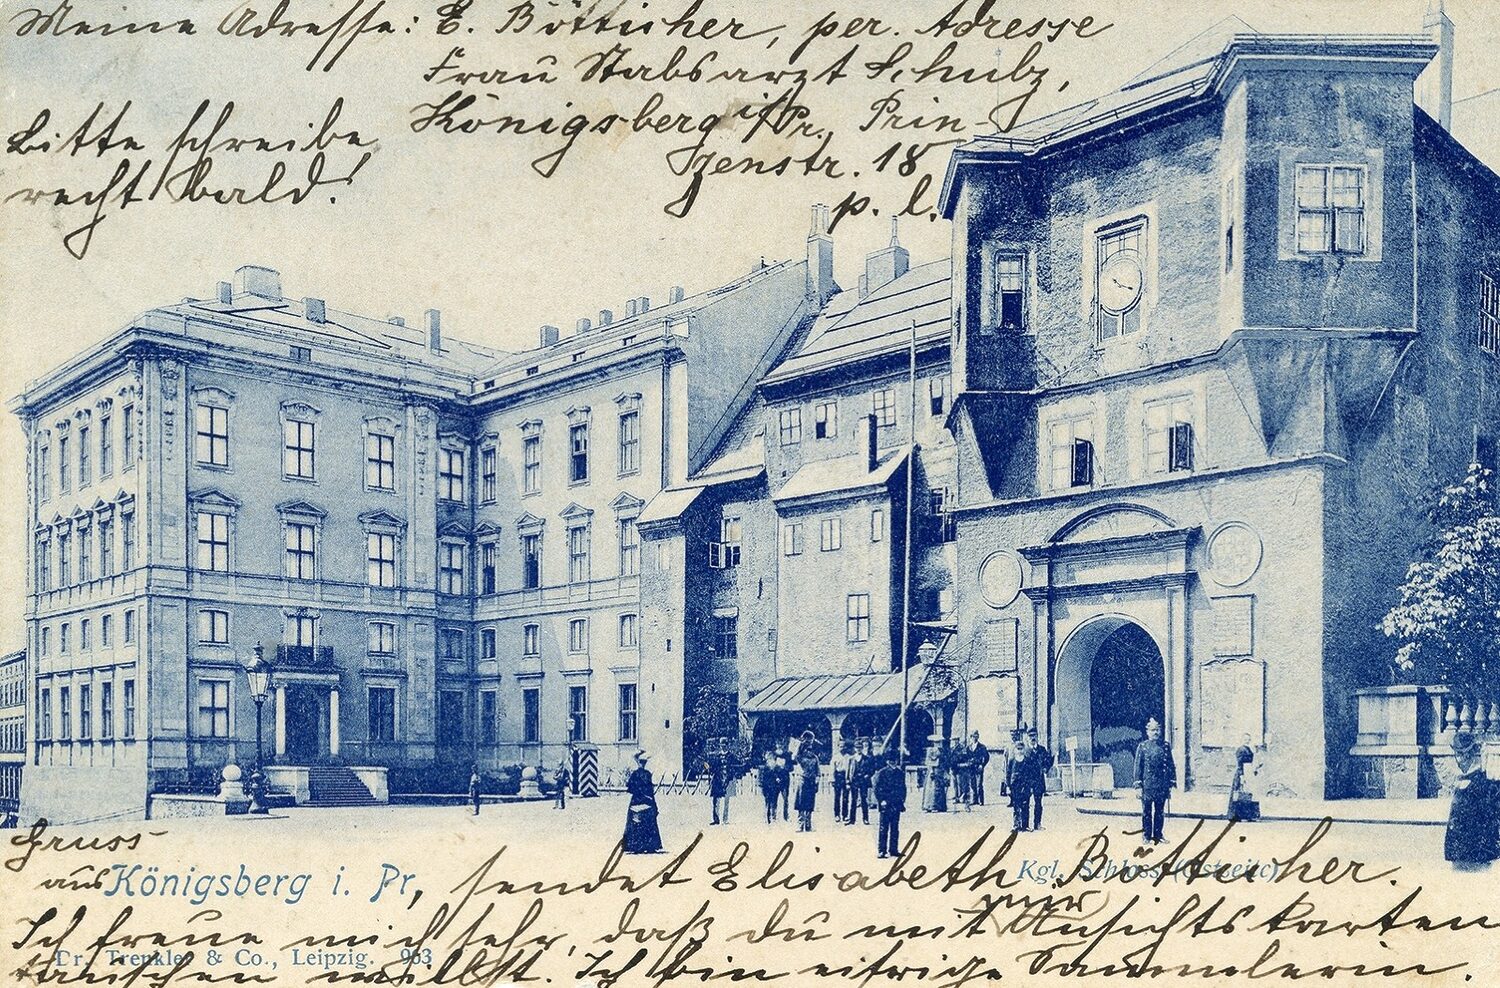 Meine Adresse: E. Bötticher, per. Adresse
Frau Stabsarzt Schulz,
Königsberg i/Pr., Prin-
zenstr. 18
p. l.
Bitte schreibe
recht bald!
Gruss
aus Königsberg i. Pr, sendet Elisabeth Bötticher.
Kgl. Schloss (Ostseite)
mir
Ich freue mich sehr, daß du mit Ansichtskarten
Dr. Trenkler & Co., Leipzig. 963
tauschen willst. Ich bin eifrige Sammlerin.